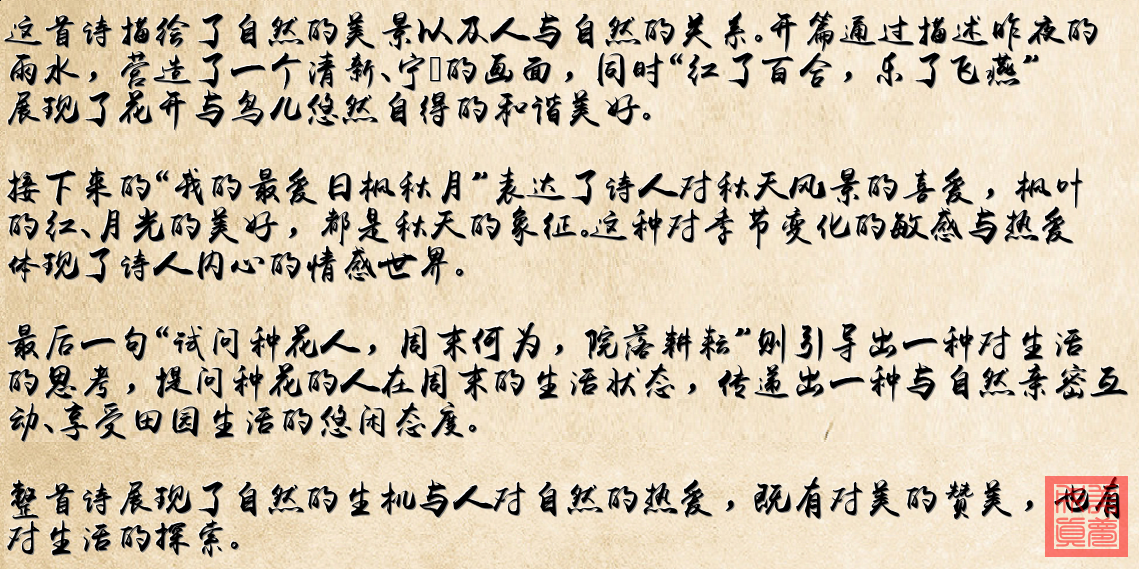 这首诗描绘了自然的美景以及人与自然的关系。开篇通过描述昨夜的
雨水，营造了一个清新、宁的画面，同时“红了百合，乐了飞燕”
展现了花开与鸟儿悠然自得的和谐美好。
接下来的“我的最爱日枫秋月”表达了诗人对秋天风景的喜爱，枫叶
的红、月光的美好，都是秋天的象征。这种对季节变化的敏感与热爱
体现了诗人内心的情感世界。
最后一句“试问种花人，周末何为，院落耕耘”则引导出一种对生活
的思考，提问种花的人在周末的生活状态，传递出一种与自然亲密互
动、享受田园生活的悠闲态度。
整首诗展现了自然的生机与人对自然的热爱，既有对美的赞美，也有
对生活的探索。